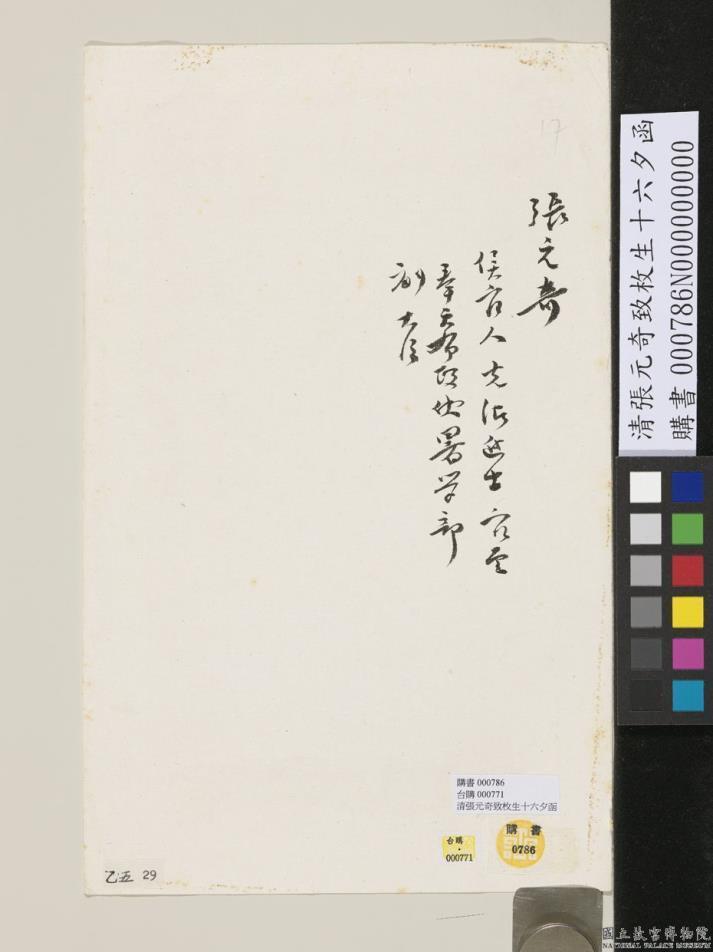 17
張元奇
侯官人 光緒進士 官至
奉天布政使署学部
副大臣
清張元奇致枚生十六夕函
購書 000786N000000000
購書 000786
台購 000771
清張元奇致枚生十六夕函
台購
000771
購書
0786
乙五 29
國立故宮博物院
NATIONAL PALACE MUSEUM